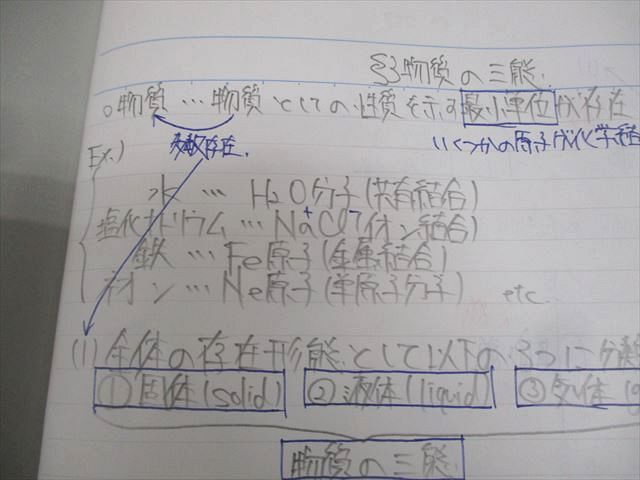 §3物質の三態.
○物質…物質としての性質を示す最小単位が存在
多数存在.
いくつかの原子が化学結
Ex.)
水…H2O分子(共有結合)
塩化ナトリウム…Na+Cl-(イオン結合)
鉄…Fe原子(金属結合)
ネオン…Ne原子(単原子分子) etc.
(1)全体の存在形態として以下の3つに分類
①固体(solid) ②液体(liquid) ③気体(g
物質の三態.